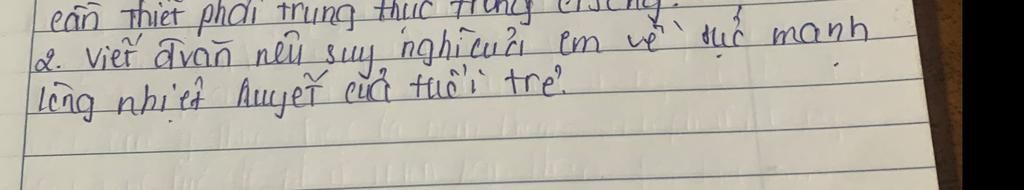 cần thiết phải trung thực trong cuộc sống.
2. Viết đoạn nêu suy nghĩ của em về sức mạnh
lòng nhiệt huyết của tuổi trẻ.